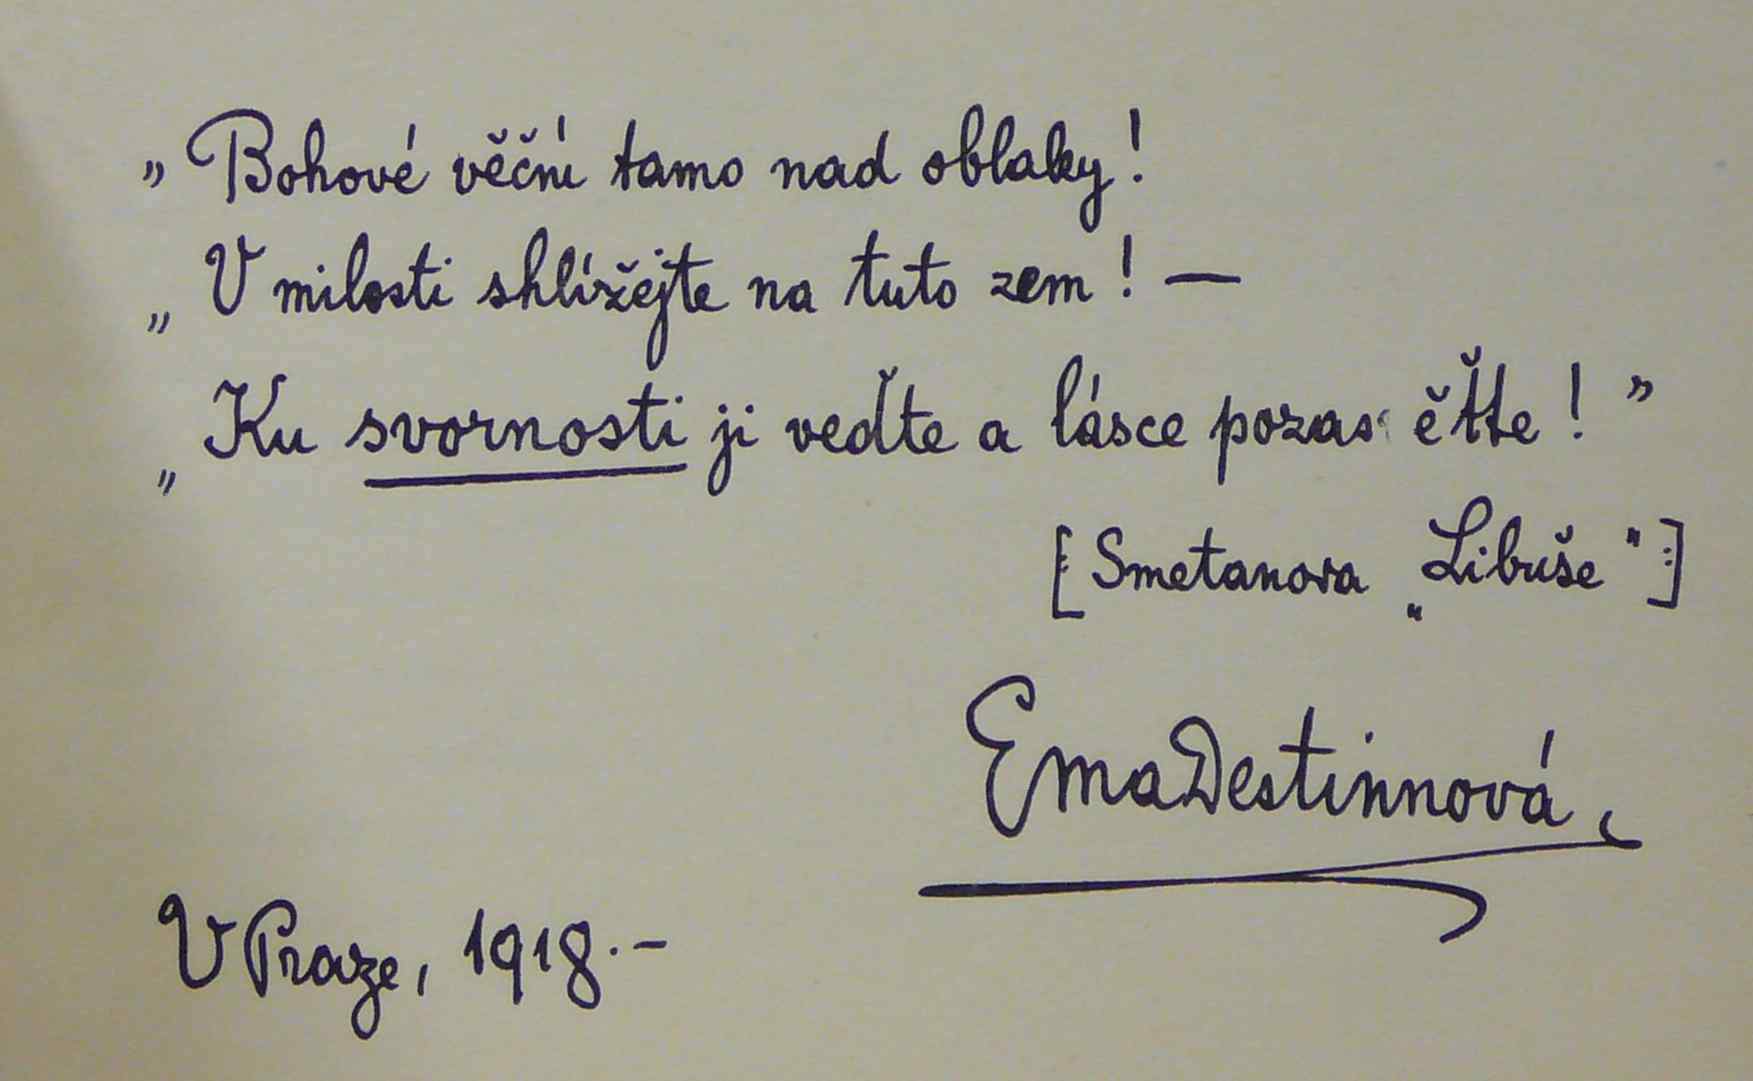 „Bohové věční tamo nad oblaky!
„V milosti shlížejte na tuto zem! —
„Ku svornosti ji veďte a lásce
[Smetanova „Libuše“]
Ema Destinnová
V Praze, 1918.–